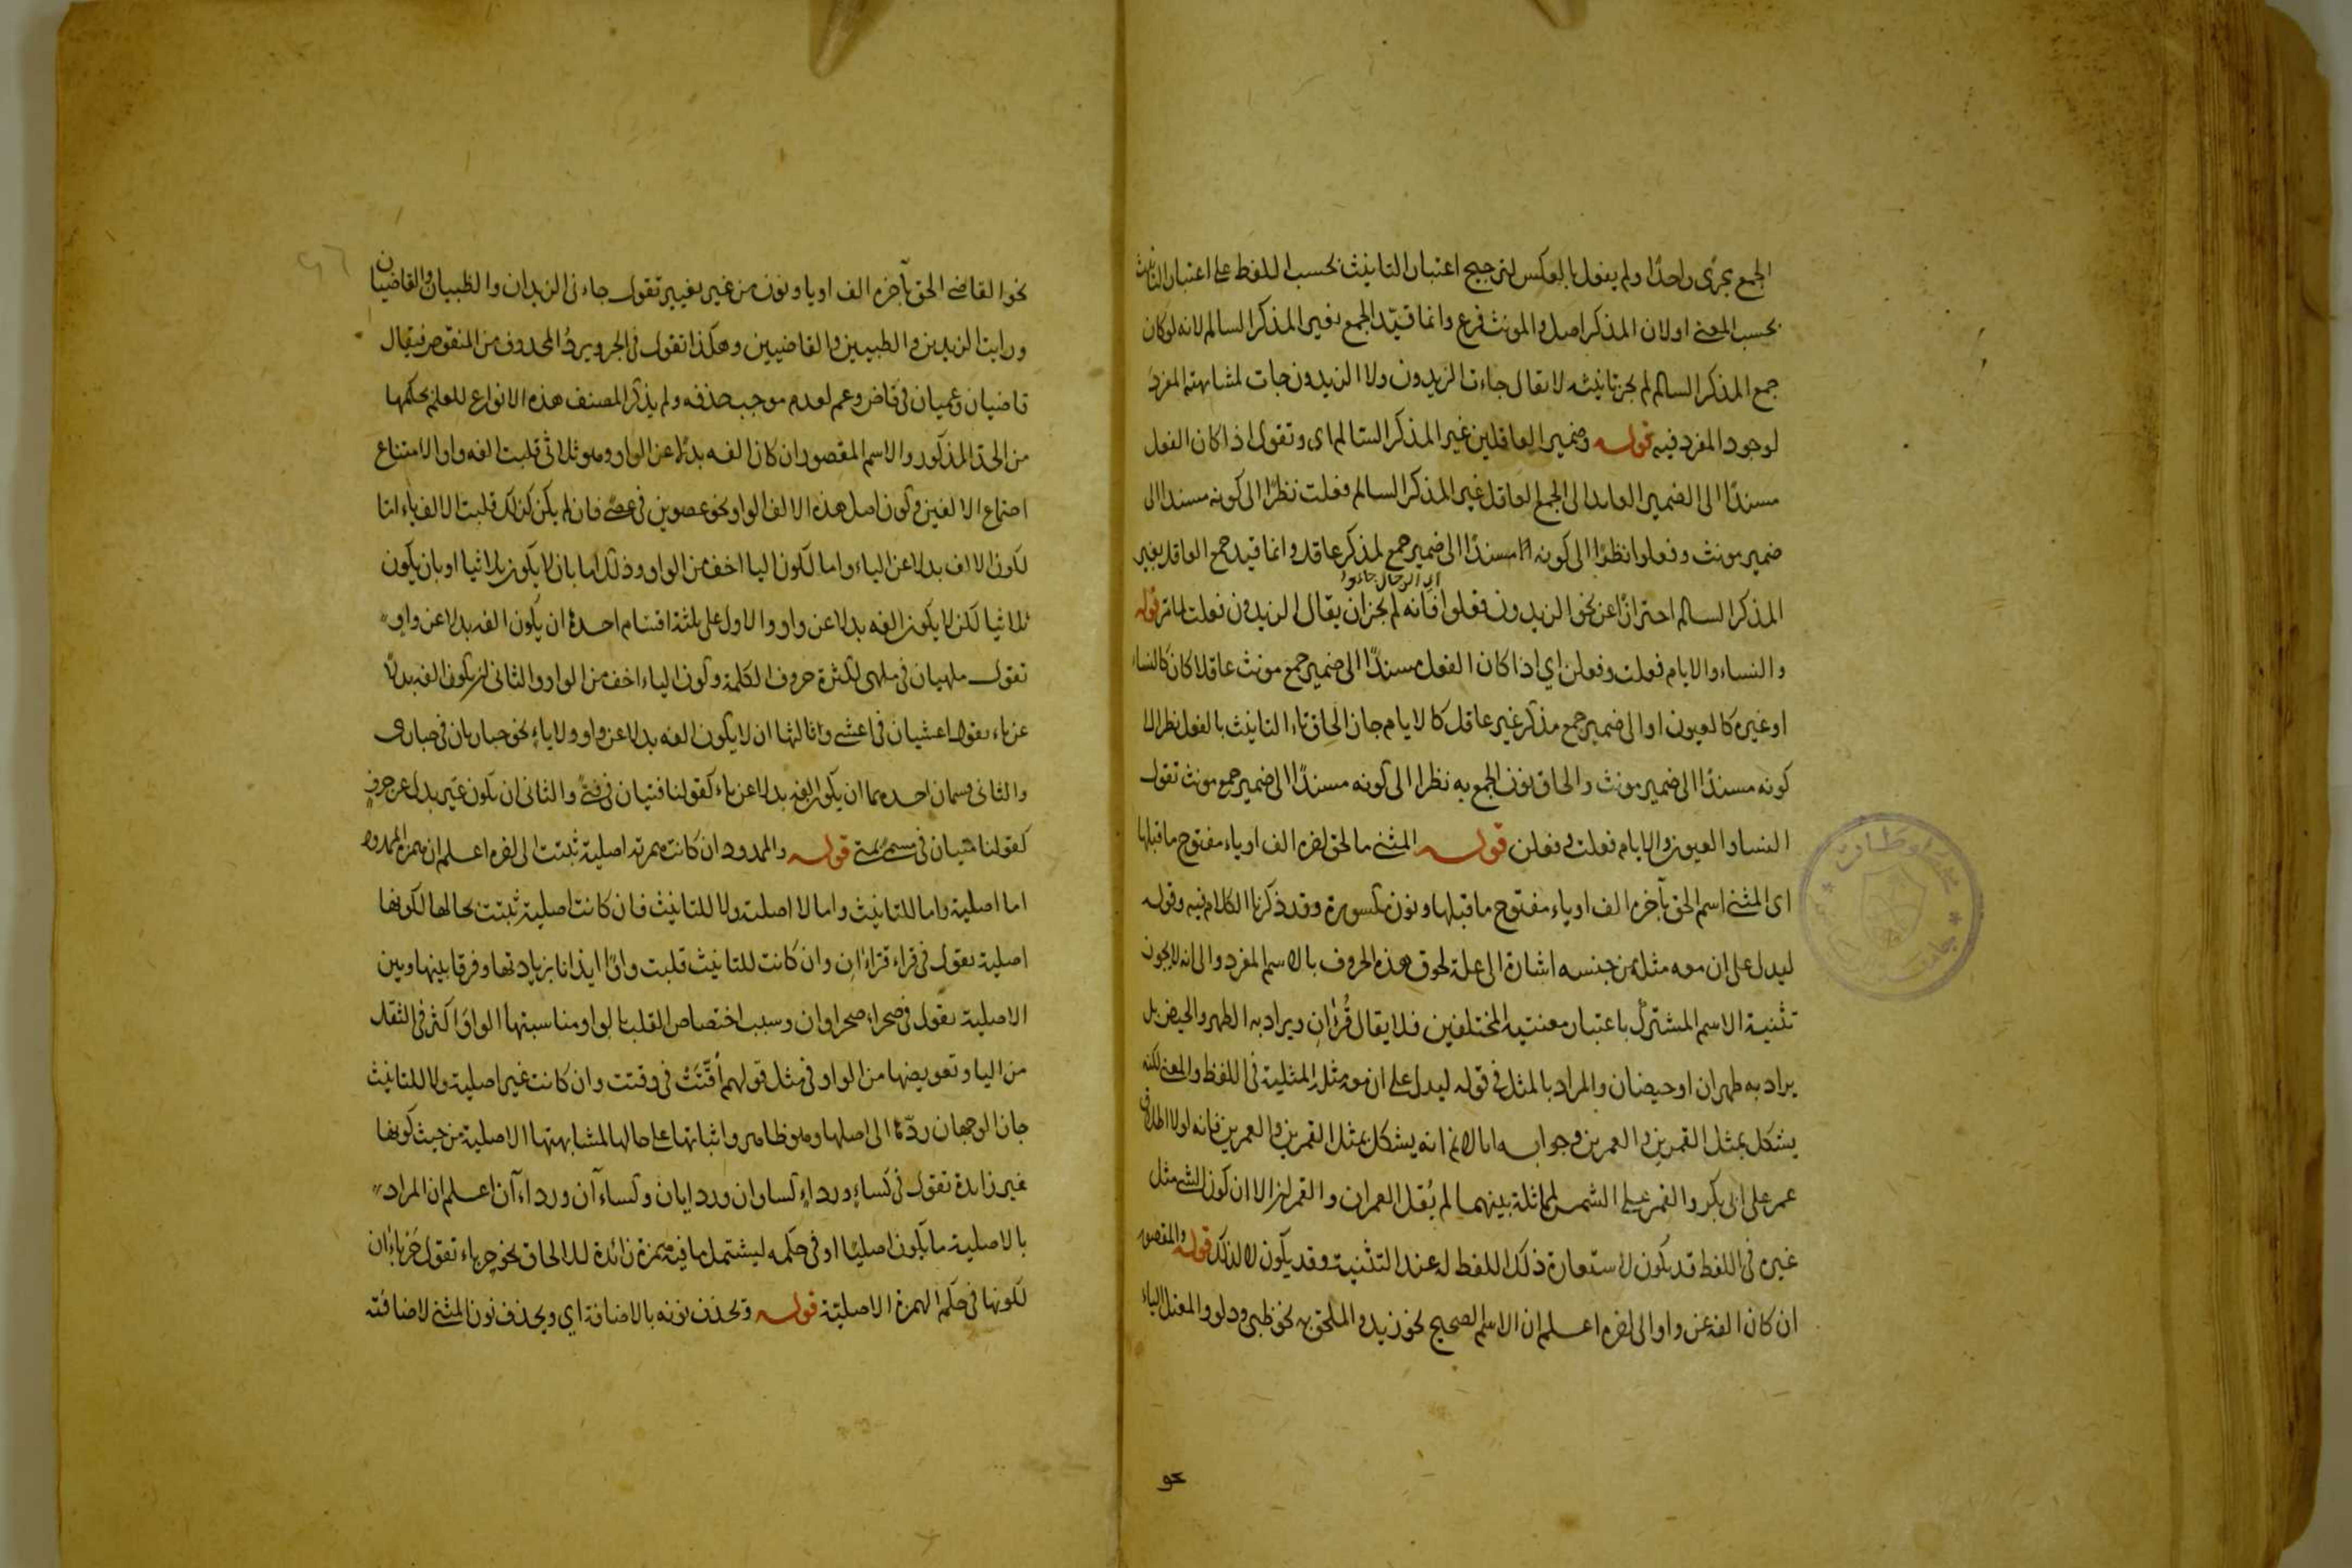 الجمع مجرى واحدًا ولم يفعل بالعكس لترجيح اعتبار التانيث بحسب اللفظ على اعتبار التانيث
بحسب المعنى اولان المذكر اصل والمونث فرع وانما قيّد الجمع بغير المذكر السالم لانه لو كان
جمع المذكر السالم لم يجز تانيثه لا يقال جاءت الزيدون ولا الزيدون جات لمشابهته المفرد
لوجود المفرد فيه قوله وضمير العاقلين غير المذكر السالم اى وتقول اذا كان الفعل
مسندًا الى الضمير العايد الى الجمع العاقل غير المذكر السالم فعلت نظرًا الى كونه مسندا الى
ضمير مونث وفعلوا نظرًا الى كونه مسندًا الى ضمير جمع لمذكر عاقل وانما قيد جمع العاقل بغير
اى الرجال جاءوا
المذكر السالم احترازًا عن نحو الزيدون فعلوا فانه لم يجز ان يقال الزيدون فعلت لما مر قوله
والنساء والايام فعلت وفعلن اي اذا كان الفعل مسندًا الى ضمير جمع مونث عاقلا كان كالنساء
او غيره كالعيون او الى ضمير جمع مذكر غير عاقل كالايام جاز الحاق تاء التانيث بالفعل نظرا الى
كونه مسندًا الى ضمير مونث والحاق نون الجمع به نظرا الى كونه مسندًا الى ضمير جمع مونث تقول
النسا والعيون والايام فعلت وفعلن قوله المثنى ما لحق اخره الف او ياء مفتوح ما قبلها
اى المثنى اسم الحق بآخره الف او ياء مفتوح ما قبلها ونون مكسورة وقد ذكرنا الكلام فيه وقوله
ليدل على ان معه مثله من جنسه اشارة الى علة لحوق هذه الحروف بالاسم المفرد والى انه لا يجوز
تثنية الاسم المشترك باعتبار معنييه المختلفين فلا يقال قُرْان ويراد به الطهر والحيض بل
يراد به طهران او حيضان والمراد بالمثل فى قوله ليدل على ان معه مثله المثلية فى اللفظ والمعنى لكنه
يشكل بمثل القمرين والعمرين وجوابه انا لا نم انه يشكل بمثل القمرين والعمرين فانه لولا اطلاق
عمر على ابى بكر والقمر على الشمس لمماثلة بينهما لم يُقل العمران والقمران الا ان كون الشى مثل
غيره فى اللفظ قد يكون لاستعارة ذلك اللفظ له عند التثنية وقد يكون لا لذلك قوله والمقصور
ان كان الفه عن واو الى اخره اعلم ان الاسم الصحيح نحو زيد والملحق به نحو ظبى ودلو والمعتل بالياء
نحو
نحو القاضى الحق بآخره الف او يا ونون من غير تغيير تقول جاءنى الزيدان والظبيان والقاضيان
ورايت الزيدين والظبيين والقاضيين وهكذا تقول فى الجر ويردّ المحذوف من المنقوص فيقال
قاضيان وعميان فى قاض وعم لعدم موجب حذفه ولم يذكر المصنف هذه الانواع للعلم بحكمها
من الحد المذكور والاسم المقصور ان كان الفه بدلًا عن الواو وهو ثلاثى قلبت الفه واوا لامتناع
اجتماع الالفين وكون اصل هذه الالف الواو نحو عصوين فى عصًى فان لم يكن كذلك قلبت الالف ياء اما
لكون الالف بدلا عن الياء واما لكون اليا اخف من الواو وذلك اما بان لا يكون ثلاثيا او بان يكون
ثلاثيا لكن لا يكون الفه بدلا عن واو والاول على ثلثة اقسام احدها ان يكون الفه بدلا عن واوٍ
تقول ملهيان فى ملهى لكثرة حروف الكلمة وكون الياء اخف من الواو والثانى ان يكون الفه بدلًا
عن ياء تقول اعشيان فى اعشى وثالثها ان لا يكون الفه بدلا عن واو ولا ياءٍ نحو حباريان فى حبارى
والثانى قسمان احدهما ان يكون الفه بدلا عن ياء كقولنا فتيان فى فتًى والثانى ان يكون غير بدل عن حرفٍ
كقولنا متيان فى مسمى بمتى قوله والممدود ان كانت همزته اصلية ثبتت الى اخره اعلم ان همزة الممدود
اما اصلية واما للتانيث واما لا اصلية ولا للتانيث فان كانت اصلية ثبتت بحالها لكونها
اصلية تقول فى قراء قراءان وان كانت للتانيث قلبت واوًا ايذانا بزيادتها وفرقا بينها وبين
الاصلية تقول فى صحراء صحراوان وسبب اختصاص القلب بالواو مناسبتها الواو اكثر فى الثقل
من اليا وتعويضها من الواو فى مثل قولهم أُقّتَت فى وقتت وان كانت غير اصلية ولا للتانيث
جاز الوجهان ردّها الى اصلها وهو ظاهر واثباتها على حالها لمشابهتها الاصلية من حيث كونها
غير زايدة تقول فى كساءٍ ورداءٍ كساوان وردايان وكساءآن ورداءآن اعلم ان المراد
بالاصلية ما يكون اصليًا او فى حكمه ليشتمل ما فيه همزة زائدة للالحاق نحو حرباء تقول حرباءان
لكونها فى حكم الهمزة الاصلية قوله وتحذف نونه بالاضافة اي ويحذف نون المثنى لاضافته